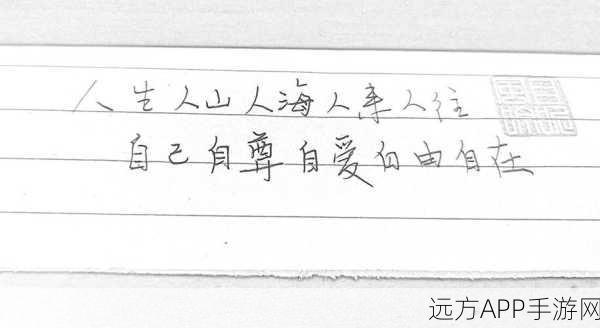 人生人山人海人来人往
自己自尊自爱自由自在
远方APP手游网